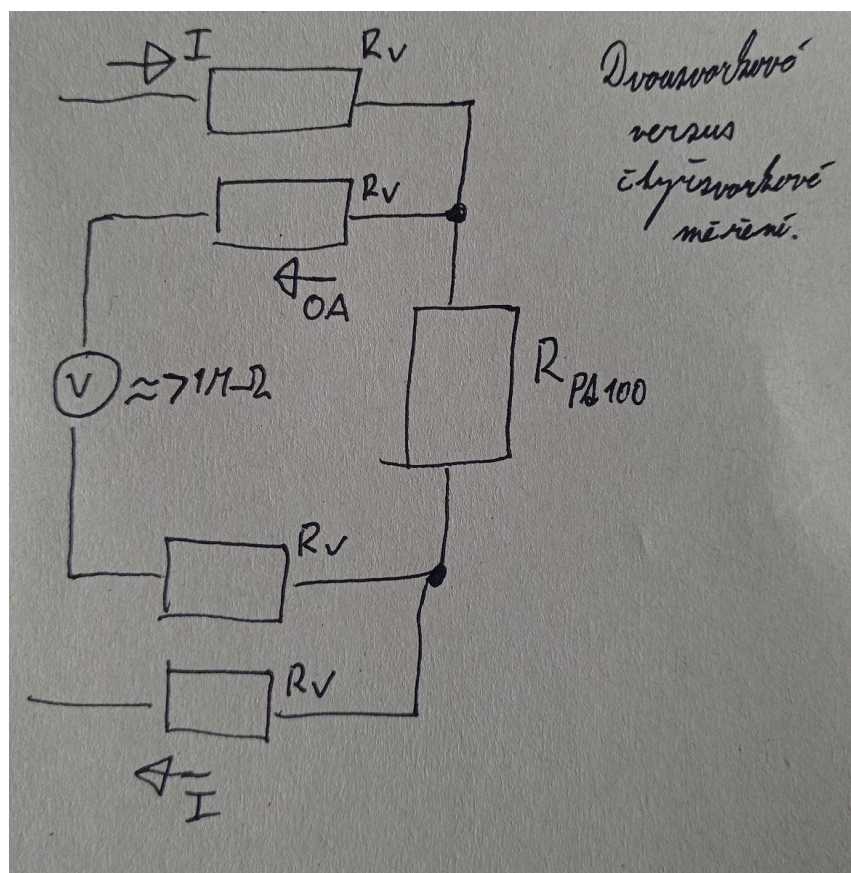 I
Rv
Dvousvorkové
versus
čtyřsvorkové
měření.
Rv
0A
V ≈>1MΩ
R Pt100
Rv
Rv
I